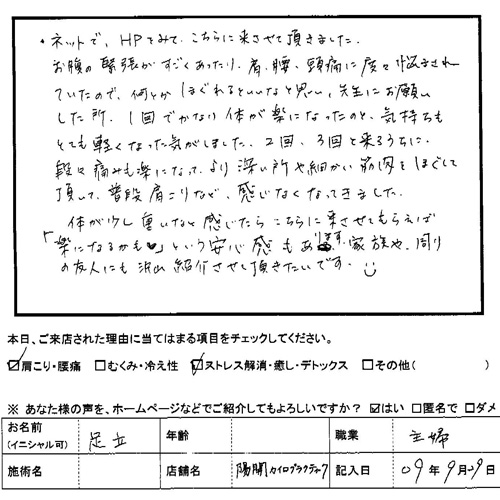 ・ネットで、HPをみて、こちらに来させて頂きました。
お腹の緊張がすごくあったり、肩、腰、頭痛に度々悩まされ
ていたので、何とか ほぐれるといいなと思い、先生にお願い
した所、1回でかなり体が楽になったのと、気持ちも
とても軽くなった気がしました。2回、3回と来るうちに、
段々痛みも楽になって、より深い所や細かい筋肉をほぐして
頂いて、普段 肩こりなど、感じなくなってきました。
体が少し重いなと感じたら こちらに来させてもらえば
「楽になるかも♥」という安心感もあります。家族や、周り
の友人にも 沢山 紹介させて頂きたいです。
本日、ご来店された理由に当てはまる項目をチェックしてください。
☑肩こり・腰痛 □むくみ・冷え性 ☑ストレス解消・癒し・デトックス □その他( )
※ あなた様の声を、ホームページなどでご紹介してもよろしいですか? ☑はい □匿名で □ダメ
お名前(イニシャル可) 足立 年齢 職業 主婦
施術名 店舗名 陽開カイロプラクティック 記入日 09年9月29日